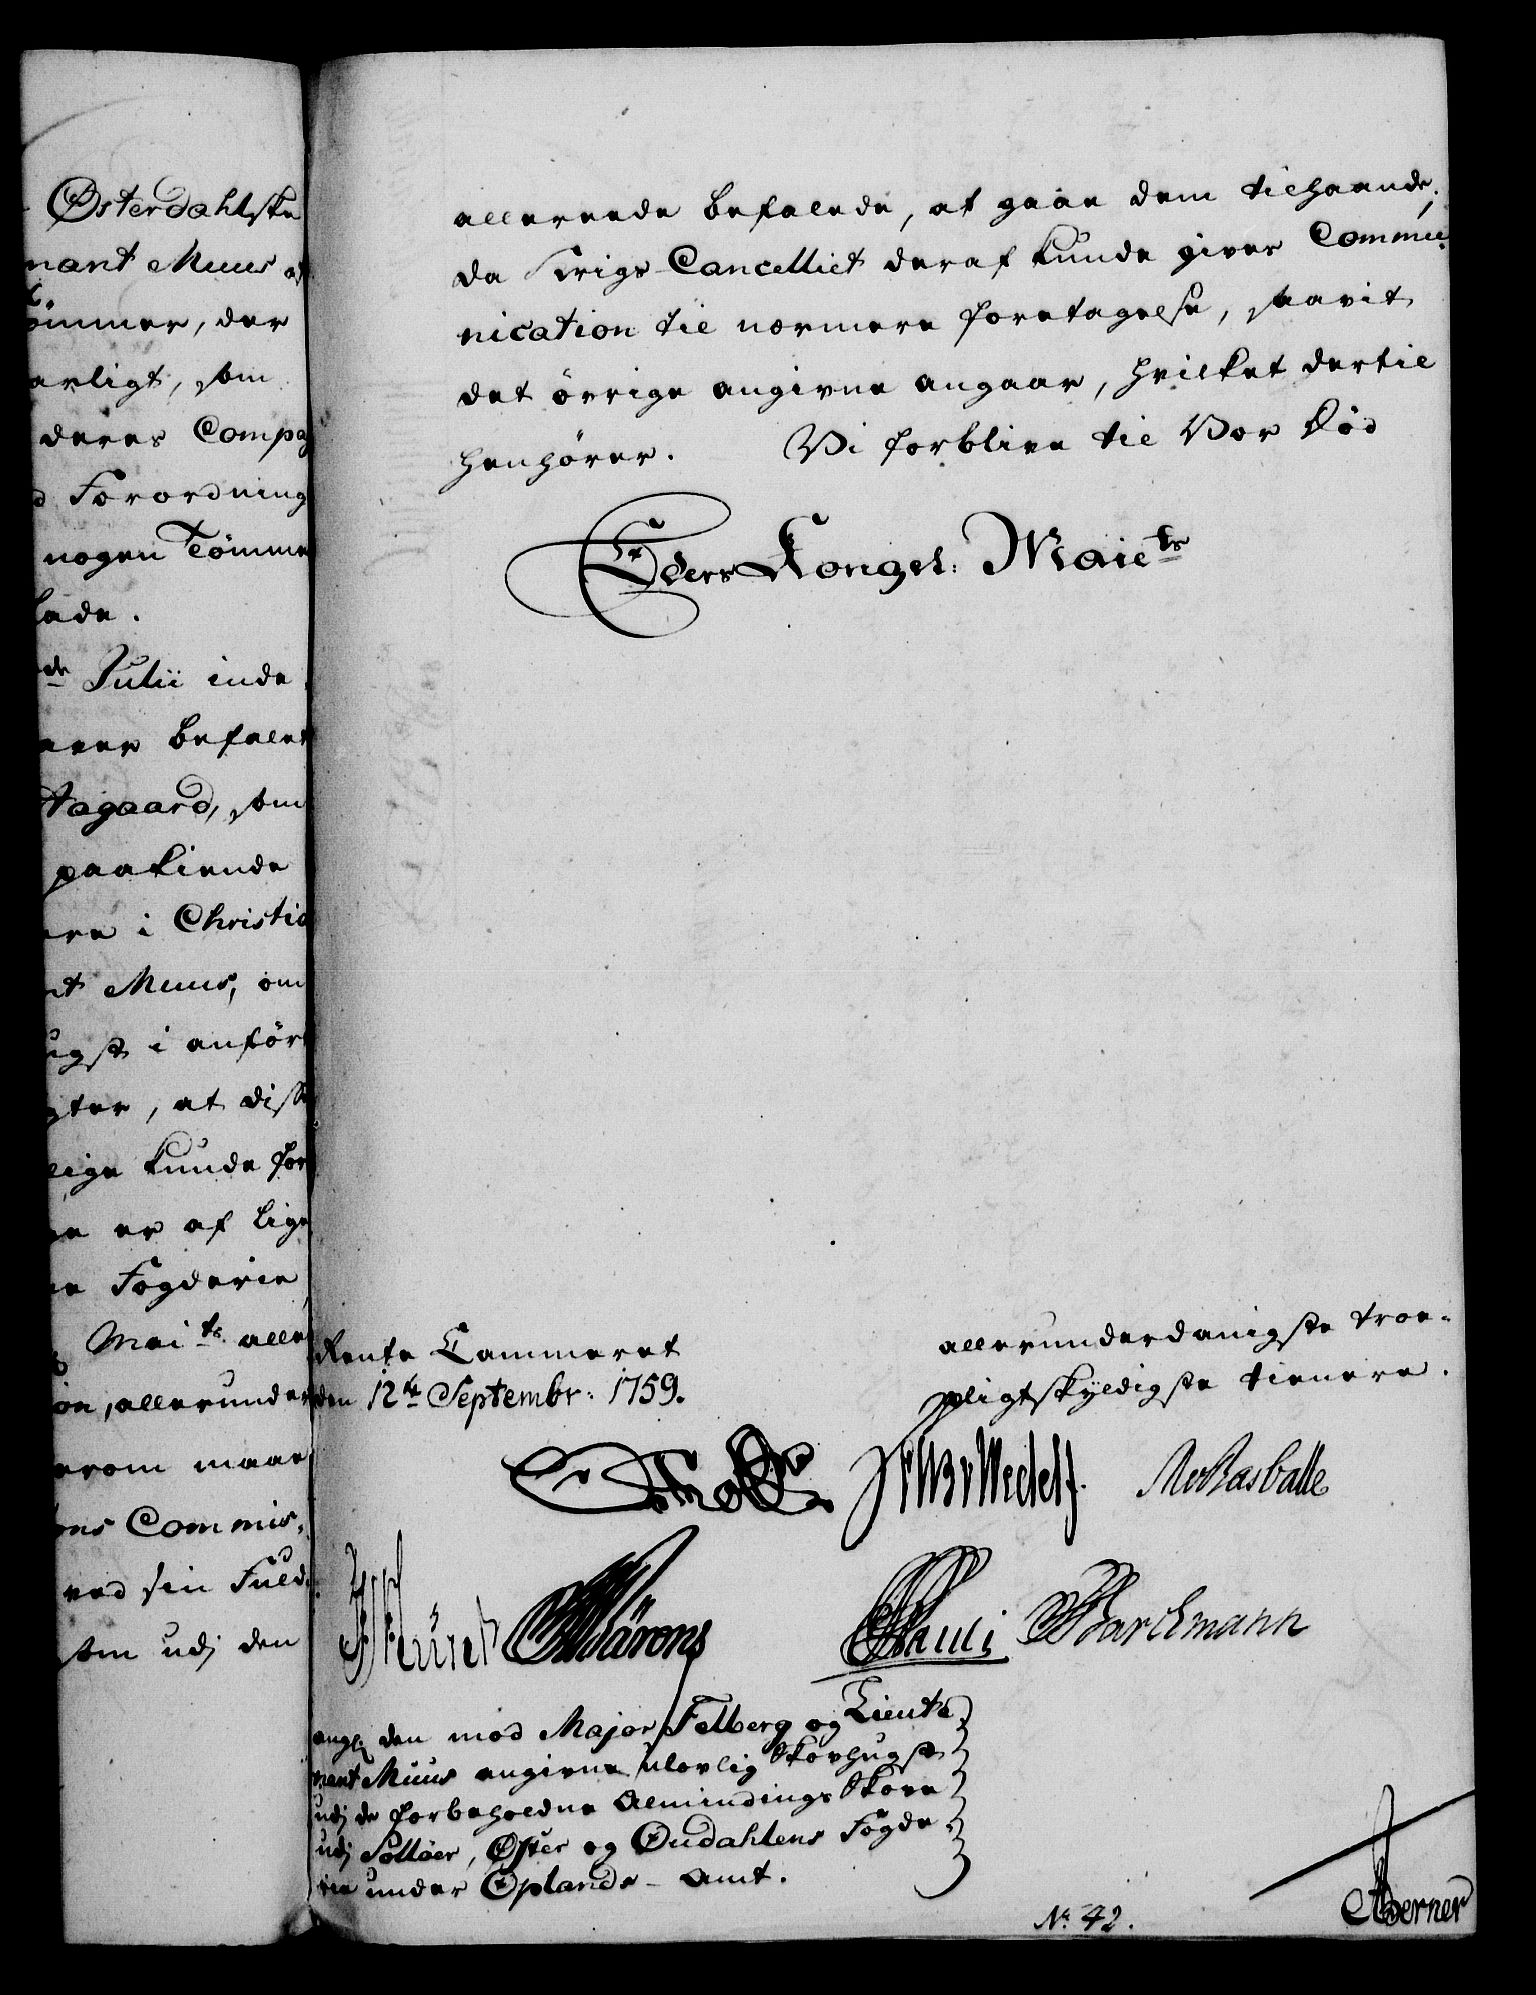 Østerdahlske
nant Muus af
ömmer, der
arligt, som
deres Compag
d Forordning
nogen Tömmer
lade.
de Julii inde
arer befalet
Aagaard, som
paakiende
ere i Christia
nt Muus, om
ugst i anfört
gter, at diss
lige kunde for
er af lige
Fogderie
Mai.ts aller
on, allerunder
erom maae
ons Commis,
ved sin Fuld
som udj den
allereede befalede, at gaae dem tilhaande;
da Krigs-Cancelliet deraf kunde gives Commu-
nication til nærmere foretagelse, saavit
det övrige angivne angaar, hvilket dertil
henhörer. Vi forblive til Vor Död
Eders Kongel: Maie.ts
Rente Cammeret
den 12te Septembr: 1759.
allerunderdanigste troe-
pligtskyldigste tienere.
Wedel
Rasballe
Bärens
Pauli Barchmann
angl. den mod Major Felberg og Lieute-
nant Muus angivne ulovlig Skovhugst
udj de forbeholdne Almindings Skove
udj Solløer, Øster og Oudahlens Fogde-
rie under Oplands-Amt.
No. 42.
Berner